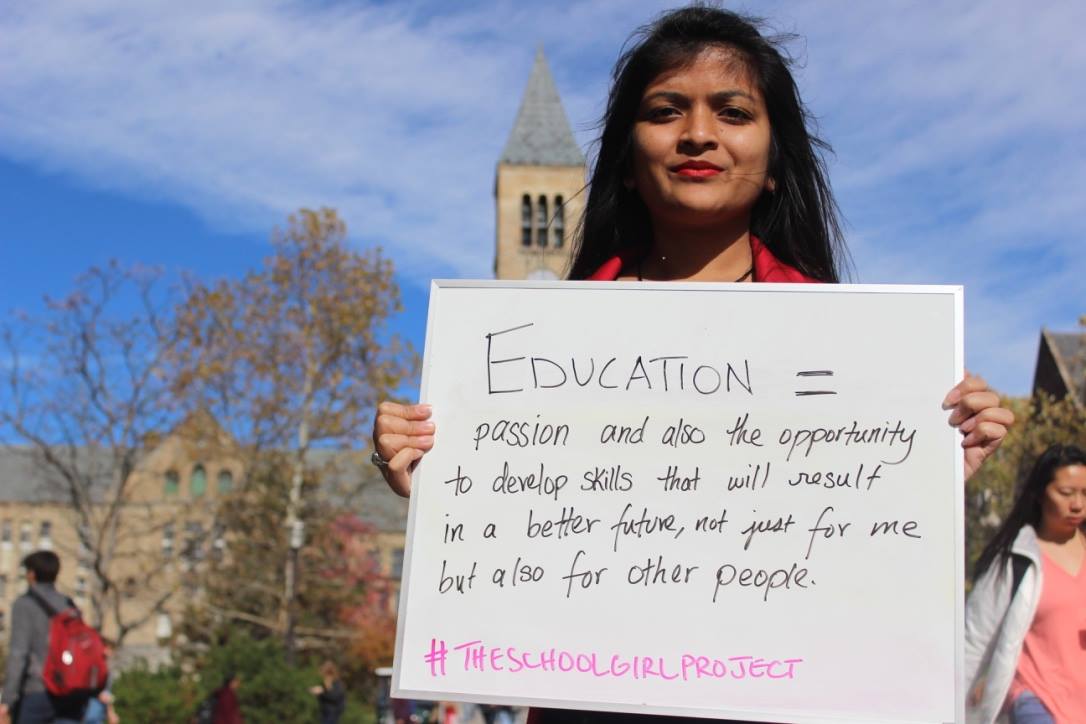 EDUCATION =
passion and also the opportunity
to develop skills that will result
in a better future, not just for me
but also for other people.
#THESCHOOLGIRLPROJECT